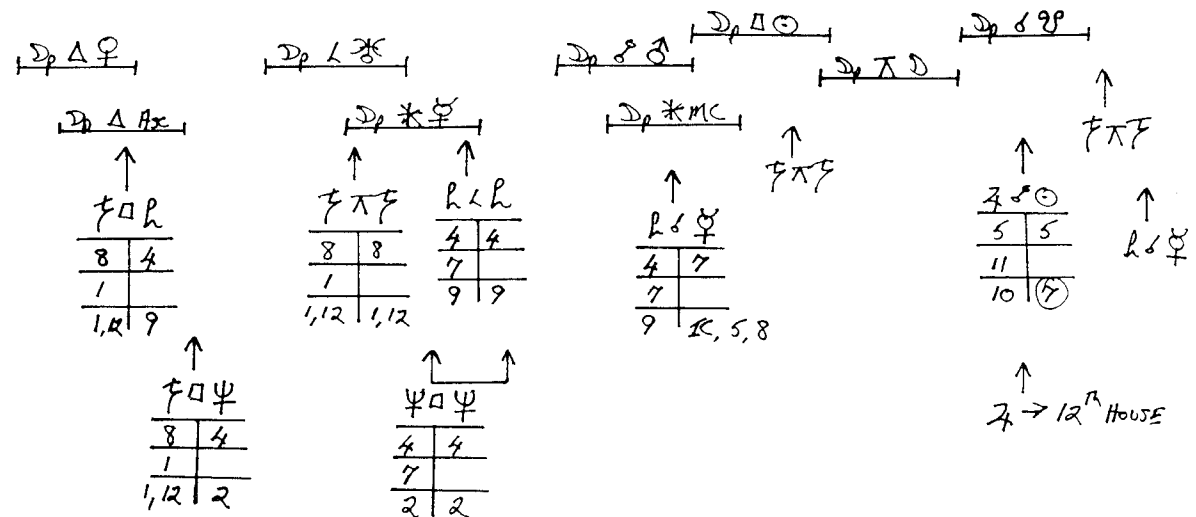 ☽p △ ♀
☽p △ Asc
♄ □ ⚷
8 4
1
1,12 9
♄ □ ♆
8 4
1
1,12 2
☽p ∠
☽p ⚹ ☿
♄ ⚻ ♄
8 8
1
1,12 1,12
4 4
7
9 9
♆ □ ♆
4 4
7
2 2
☽p ☍ ♂
☽p □ ☉
☽p ⚹ MC
☌ ☿
4 7
7
9 IC, 5, 8
☽p ⚻ ☽
♄ ⚻ ♄
☽p ☌
♄ ⚻ ♄
♃ ☍ ☉
5 5
11
10 7
☌ ☿
♃ → 12TH HOUSE